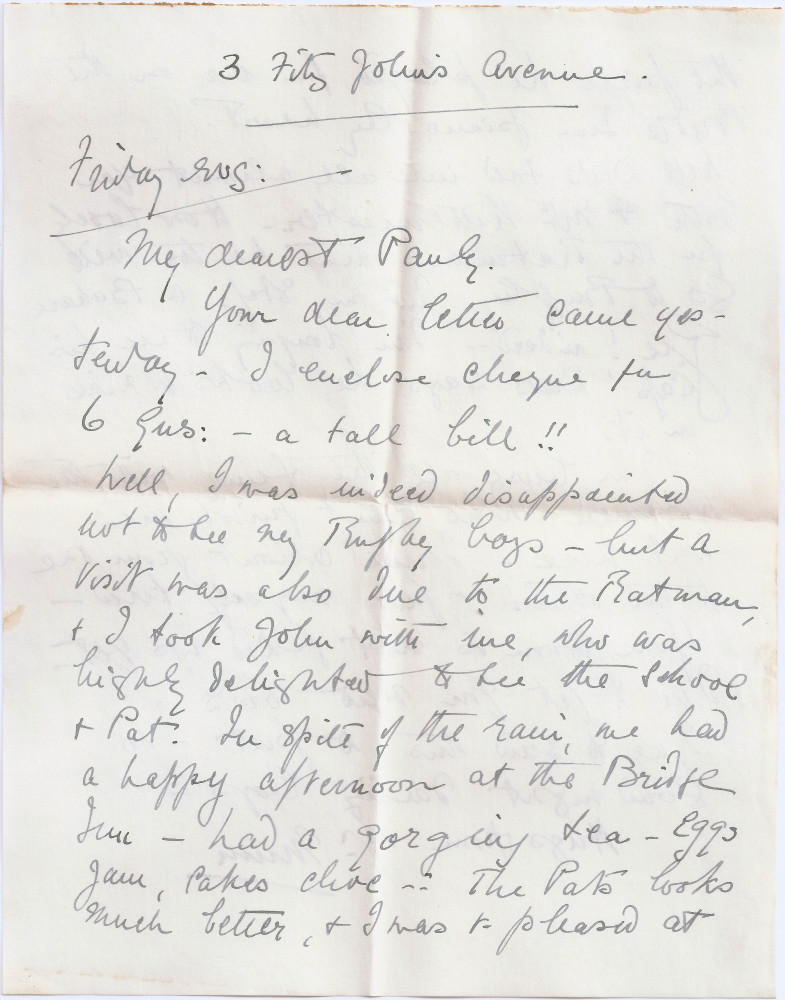 3 Fitz John's Avenue.
Friday evg: —
My dearest Pauly.
Your dear letter came yes-
terday - I enclose cheque for
6 Gns: - a tall bill !!
Well, I was indeed disappointed
not to see my Rugby boys - but a
visit was also due to the Ratman,
& I took John with me, who was
highly delighted to see the School
& Pat. In spite of the rain, we had
a happy afternoon at the Bridge
Inn - had a gorging tea - Eggs
Jam, cakes choc -- The Pats looks
much better, & I was v. pleased at